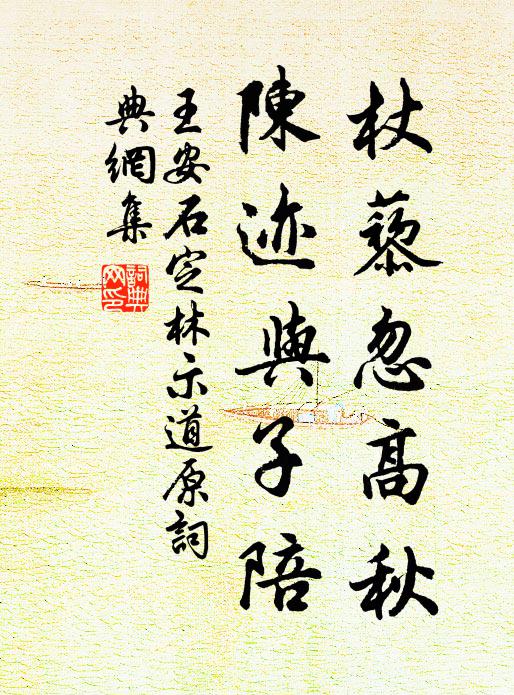 杖藜忽高秋
陳迹與子陪
王安石定林示道原詞
典網集
詞典
网印